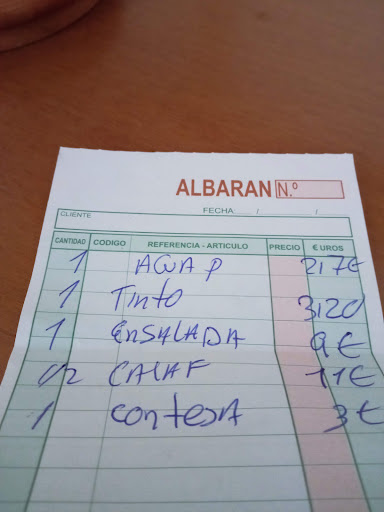 ALBARAN N.º
FECHA: / /
CLIENTE
CANTIDAD CODIGO REFERENCIA - ARTICULO PRECIO €UROS
1 AGUA P 2,7€
1 TinTo 3,20
1 EnSALADA 9€
1/2 CALAF 11€
1 conTesA 3€